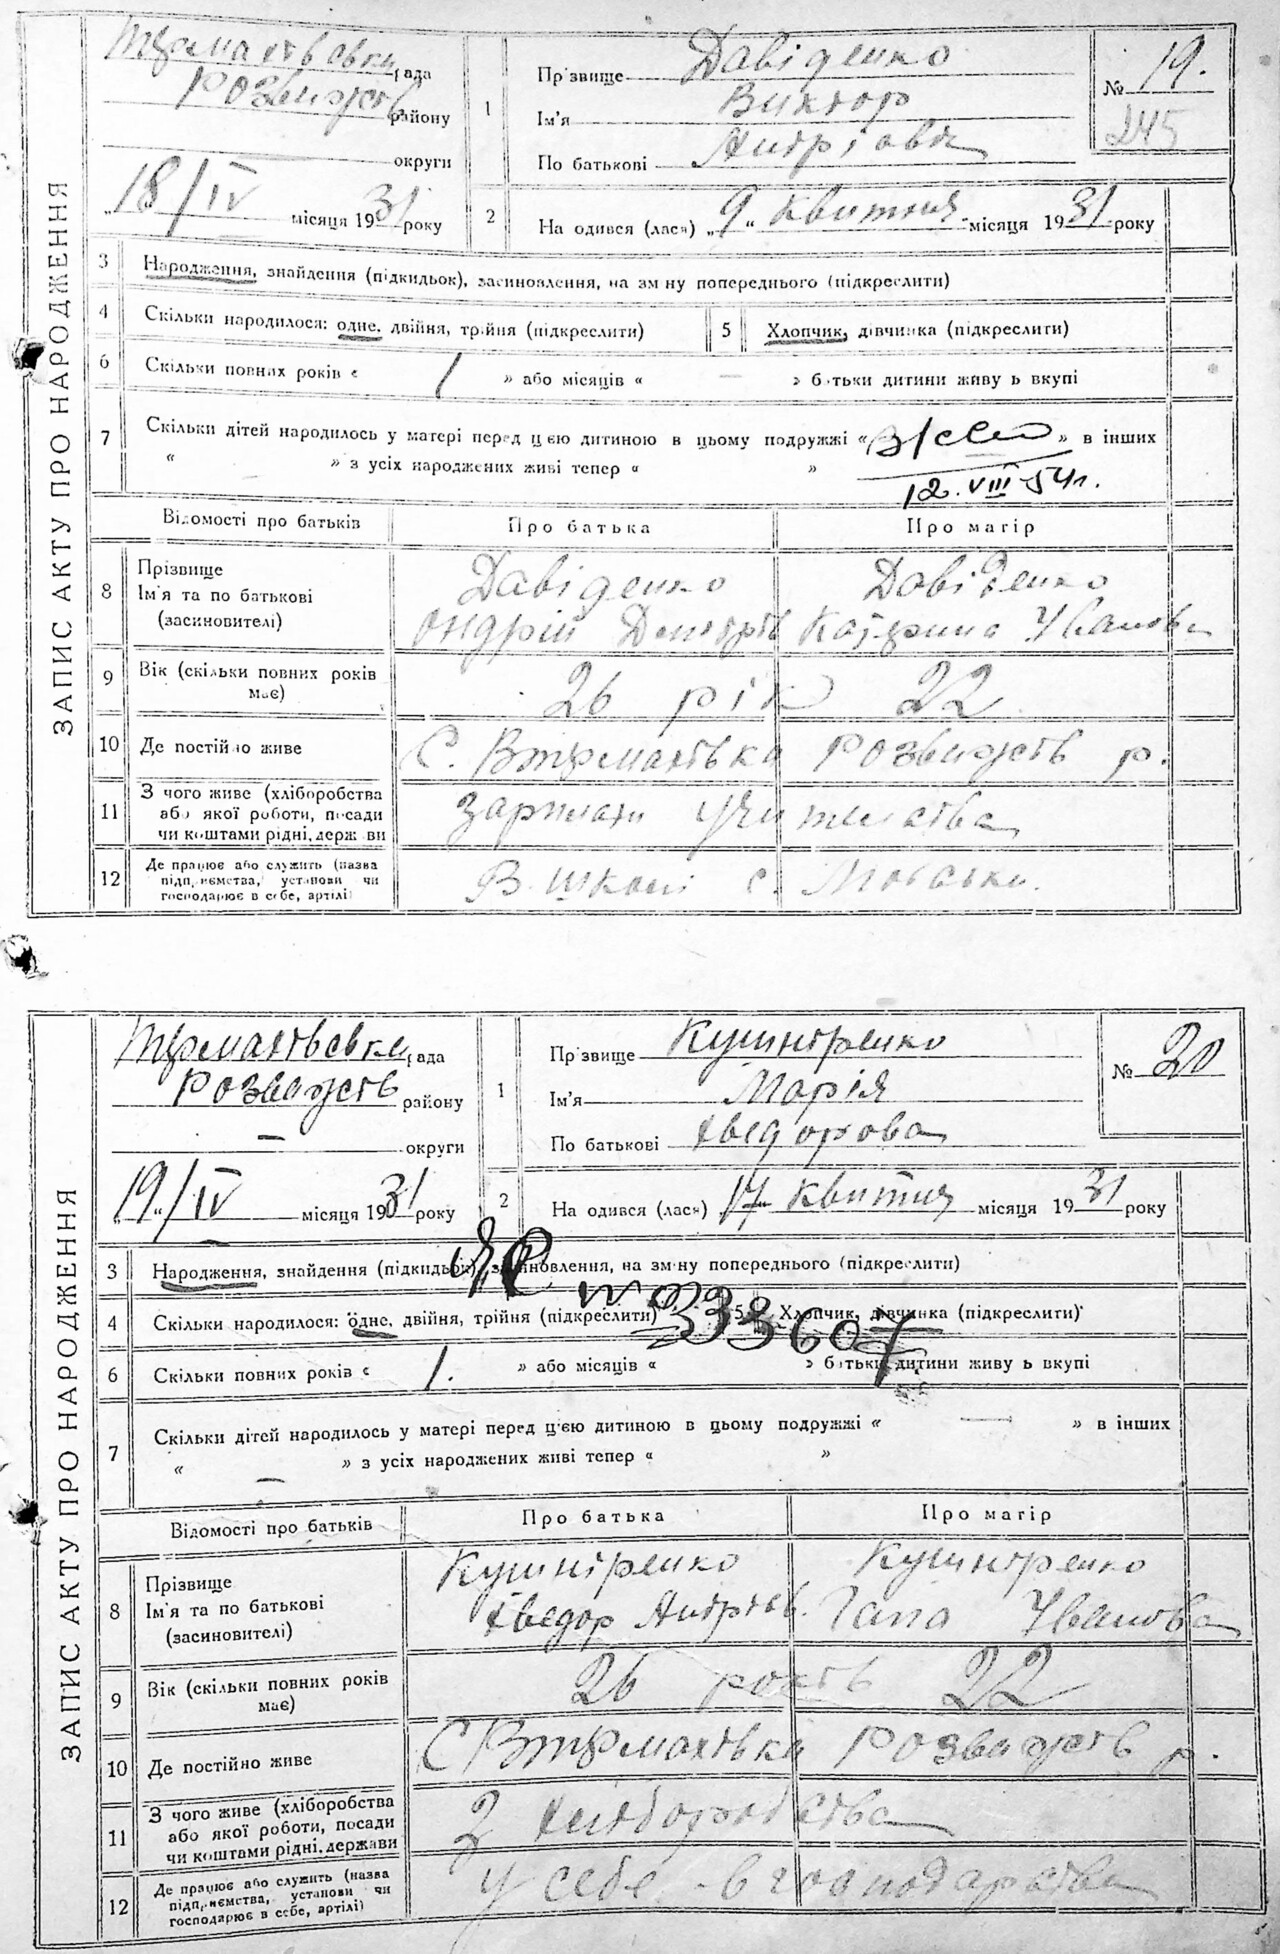 ЗАПИС АКТУ ПРО НАРОДЖЕННЯ
рада
району
округи
18/IV місяця 1931 року
1
Прізвище Давіденко
Ім'я Виктор
По батькові
№ 19.
245
2
На одився (лася) „9“ квитня місяця 1931 року
3 Народження, знайдення (підкидьок), засиновлення, на зм ну попереднього (підкреслити)
4 Скільки народилося: одне, двійня, трійня (підкреслити) 5 Хлопчик, дівчинка (підкреслити)
6 Скільки повних років « 1 » або місяців « — » батьки дитини живу ь вкупі
7 Скільки дітей народилось у матері перед цією дитиною в цьому подружжі « » в інших
« » з усіх народжених живі тепер « »
12.VIII-54г.
Відомості про батьків Про батька Про матір
8 Прізвище
Ім'я та по батькові
(засиновителі)
Давіденко Давіденко
Ондрій Катерина
9 Вік (скільки повних років має)
26 рік 22
10 Де постійно живе
С. р.
11 З чого живе (хліборобства або якої роботи, посади чи коштами рідні, держ ви
зарплати учительства
12 Де працює або служить (назва підп, иємства, установи чи господарює в себе, артілі)
В школі с.
ЗАПИС АКТУ ПРО НАРОДЖЕННЯ
рада
району
— округи
19/IV місяця 1931 року
1
Прізвище
Ім'я Марія
По батькові Хведорова
№ 20
2
На одився (лася) 17 квитня місяця 1931 року
3 Народження, знайдення (підкидьок), засиновлення, на зм ну попереднього (підкреслити)
№ 333607
4 Скільки народилося: одне, двійня, трійня (підкреслити) 5 Хлопчик, дівчинка (підкреслити)
6 Скільки повних років « 1. » або місяців « » батьки дитини живу ь вкупі
7 Скільки дітей народилось у матері перед цією дитиною в цьому подружжі « — » в інших
« — » з усіх народжених живі тепер « »
Відомості про батьків Про батька Про матір
8 Прізвище
Ім'я та по батькові
(засиновителі)
Хведор Гапа
9 Вік (скільки повних років має)
26 22
10 Де постійно живе
С р.
11 З чого живе (хліборобства або якої роботи, посади чи коштами рідні, держави
З хліборобства
12 Де працює або служить (назва підп, иємства, установи чи господарює в себе, артілі)
у себе в господарстве